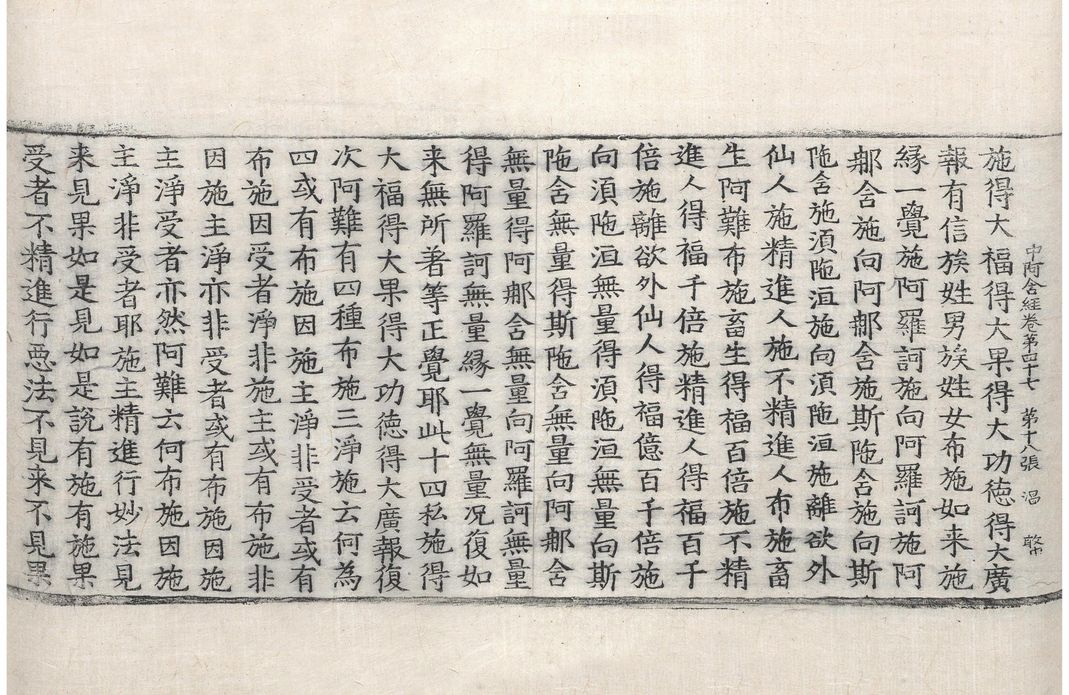 中阿含經卷第四十七　第十張　㴞
施得大福得大果得大功徳得大廣
報有信族姓男族姓女布施如来施
縁一覺施阿羅訶施向阿羅訶施阿
那含施向阿那含施斯陁含施向斯
陁含施湏陁洹施向湏陁洹施離欲外
仙人施精進人施不精進人布施畜
生阿難布施畜生得福百倍施不精
進人得福千倍施精進人得福百千
倍施離欲外仙人得福億百千倍施
向湏陁洹無量得湏陁洹無量向斯
陁含無量得斯陁含無量向阿那含
無量得阿那含無量向阿羅訶無量
得阿羅訶無量縁一覺無量况復如
来無所著等正覺耶此十四私施得
大福得大果得大功徳得大廣報復
次阿難有四種布施三淨施云何為
四或有布施因施主淨非受者或有
布施因受者淨非施主或有布施非
因施主淨亦非受者或有布施因施
主淨受者亦然阿難云何布施因施
主淨非受者耶施主精進行妙法見
来見果如是見如是說有施有施果
受者不精進行惡法不見来不見果